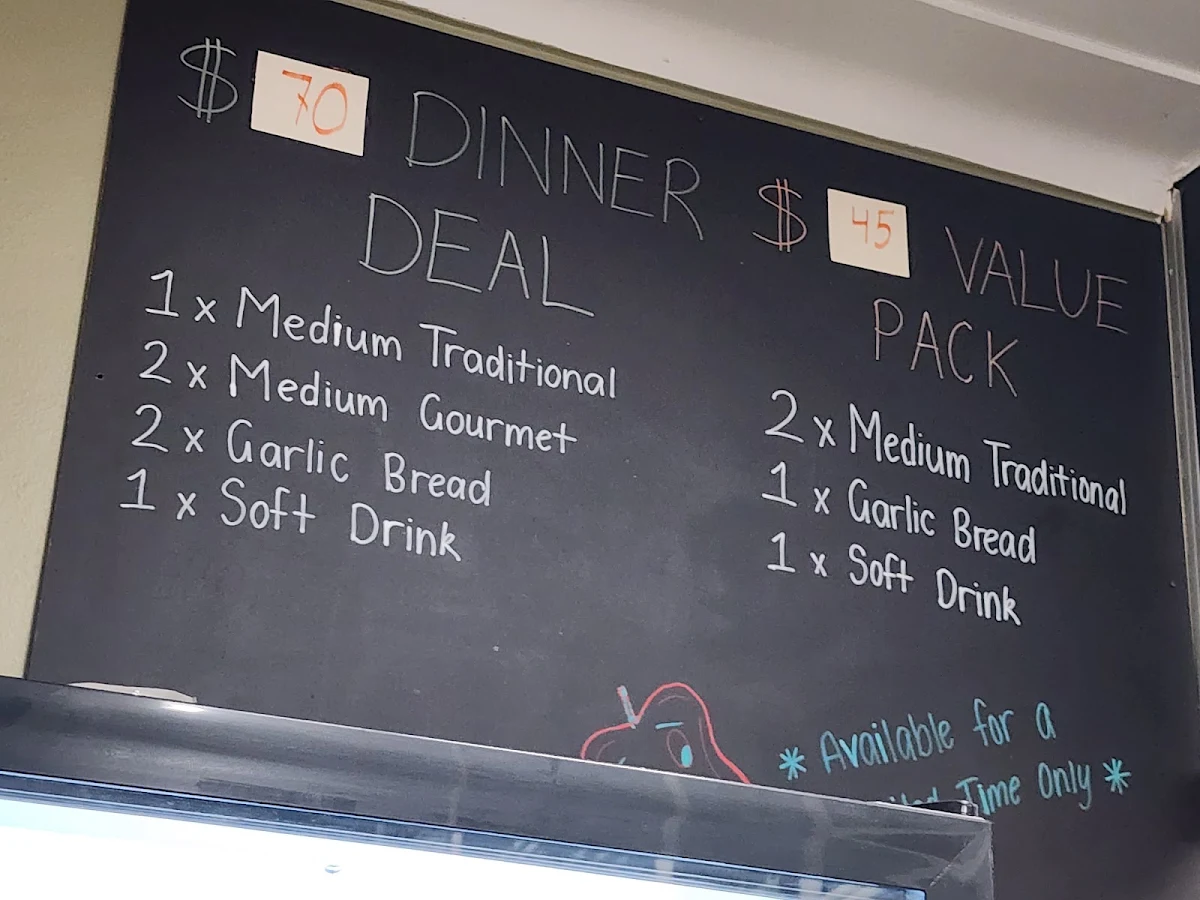 $ 70 DINNER
DEAL
1 x Medium Traditional
2 x Medium Gourmet
2 x Garlic Bread
1 x Soft Drink
$ 45 VALUE
PACK
2 x Medium Traditional
1 x Garlic Bread
1 x Soft Drink
* Available for a
Time Only *